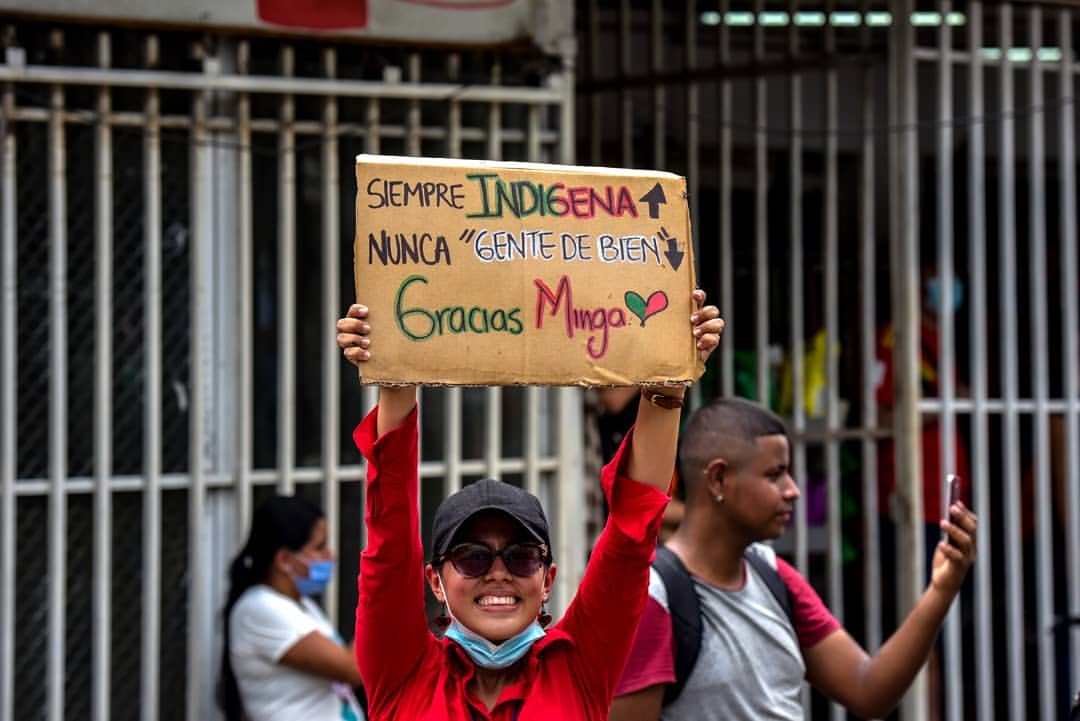 SIEMPRE INDIGENA
NUNCA "GENTE DE BIEN"
Gracias Minga